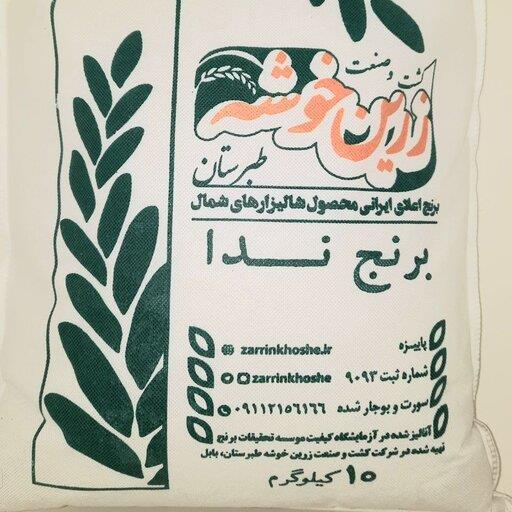 کشت و صنعت
زرین خوشه
طبرستان
برنج اعلای ایرانی محصول شالیزارهای شمال
برنج ندا
پاییزه
zarrinkhoshe.ir
شماره ثبت ۹۰۹۳
zarrinkhoshe
سورت و بوجار شده
۰۹۱۱۲۱۵۶۱۶۶
آنالیز شده در آزمایشگاه کیفیت موسسه تحقیقات برنج
تهیه شده در شرکت کشت و صنعت زرین خوشه طبرستان، بابل
۱۰ کیلوگرم